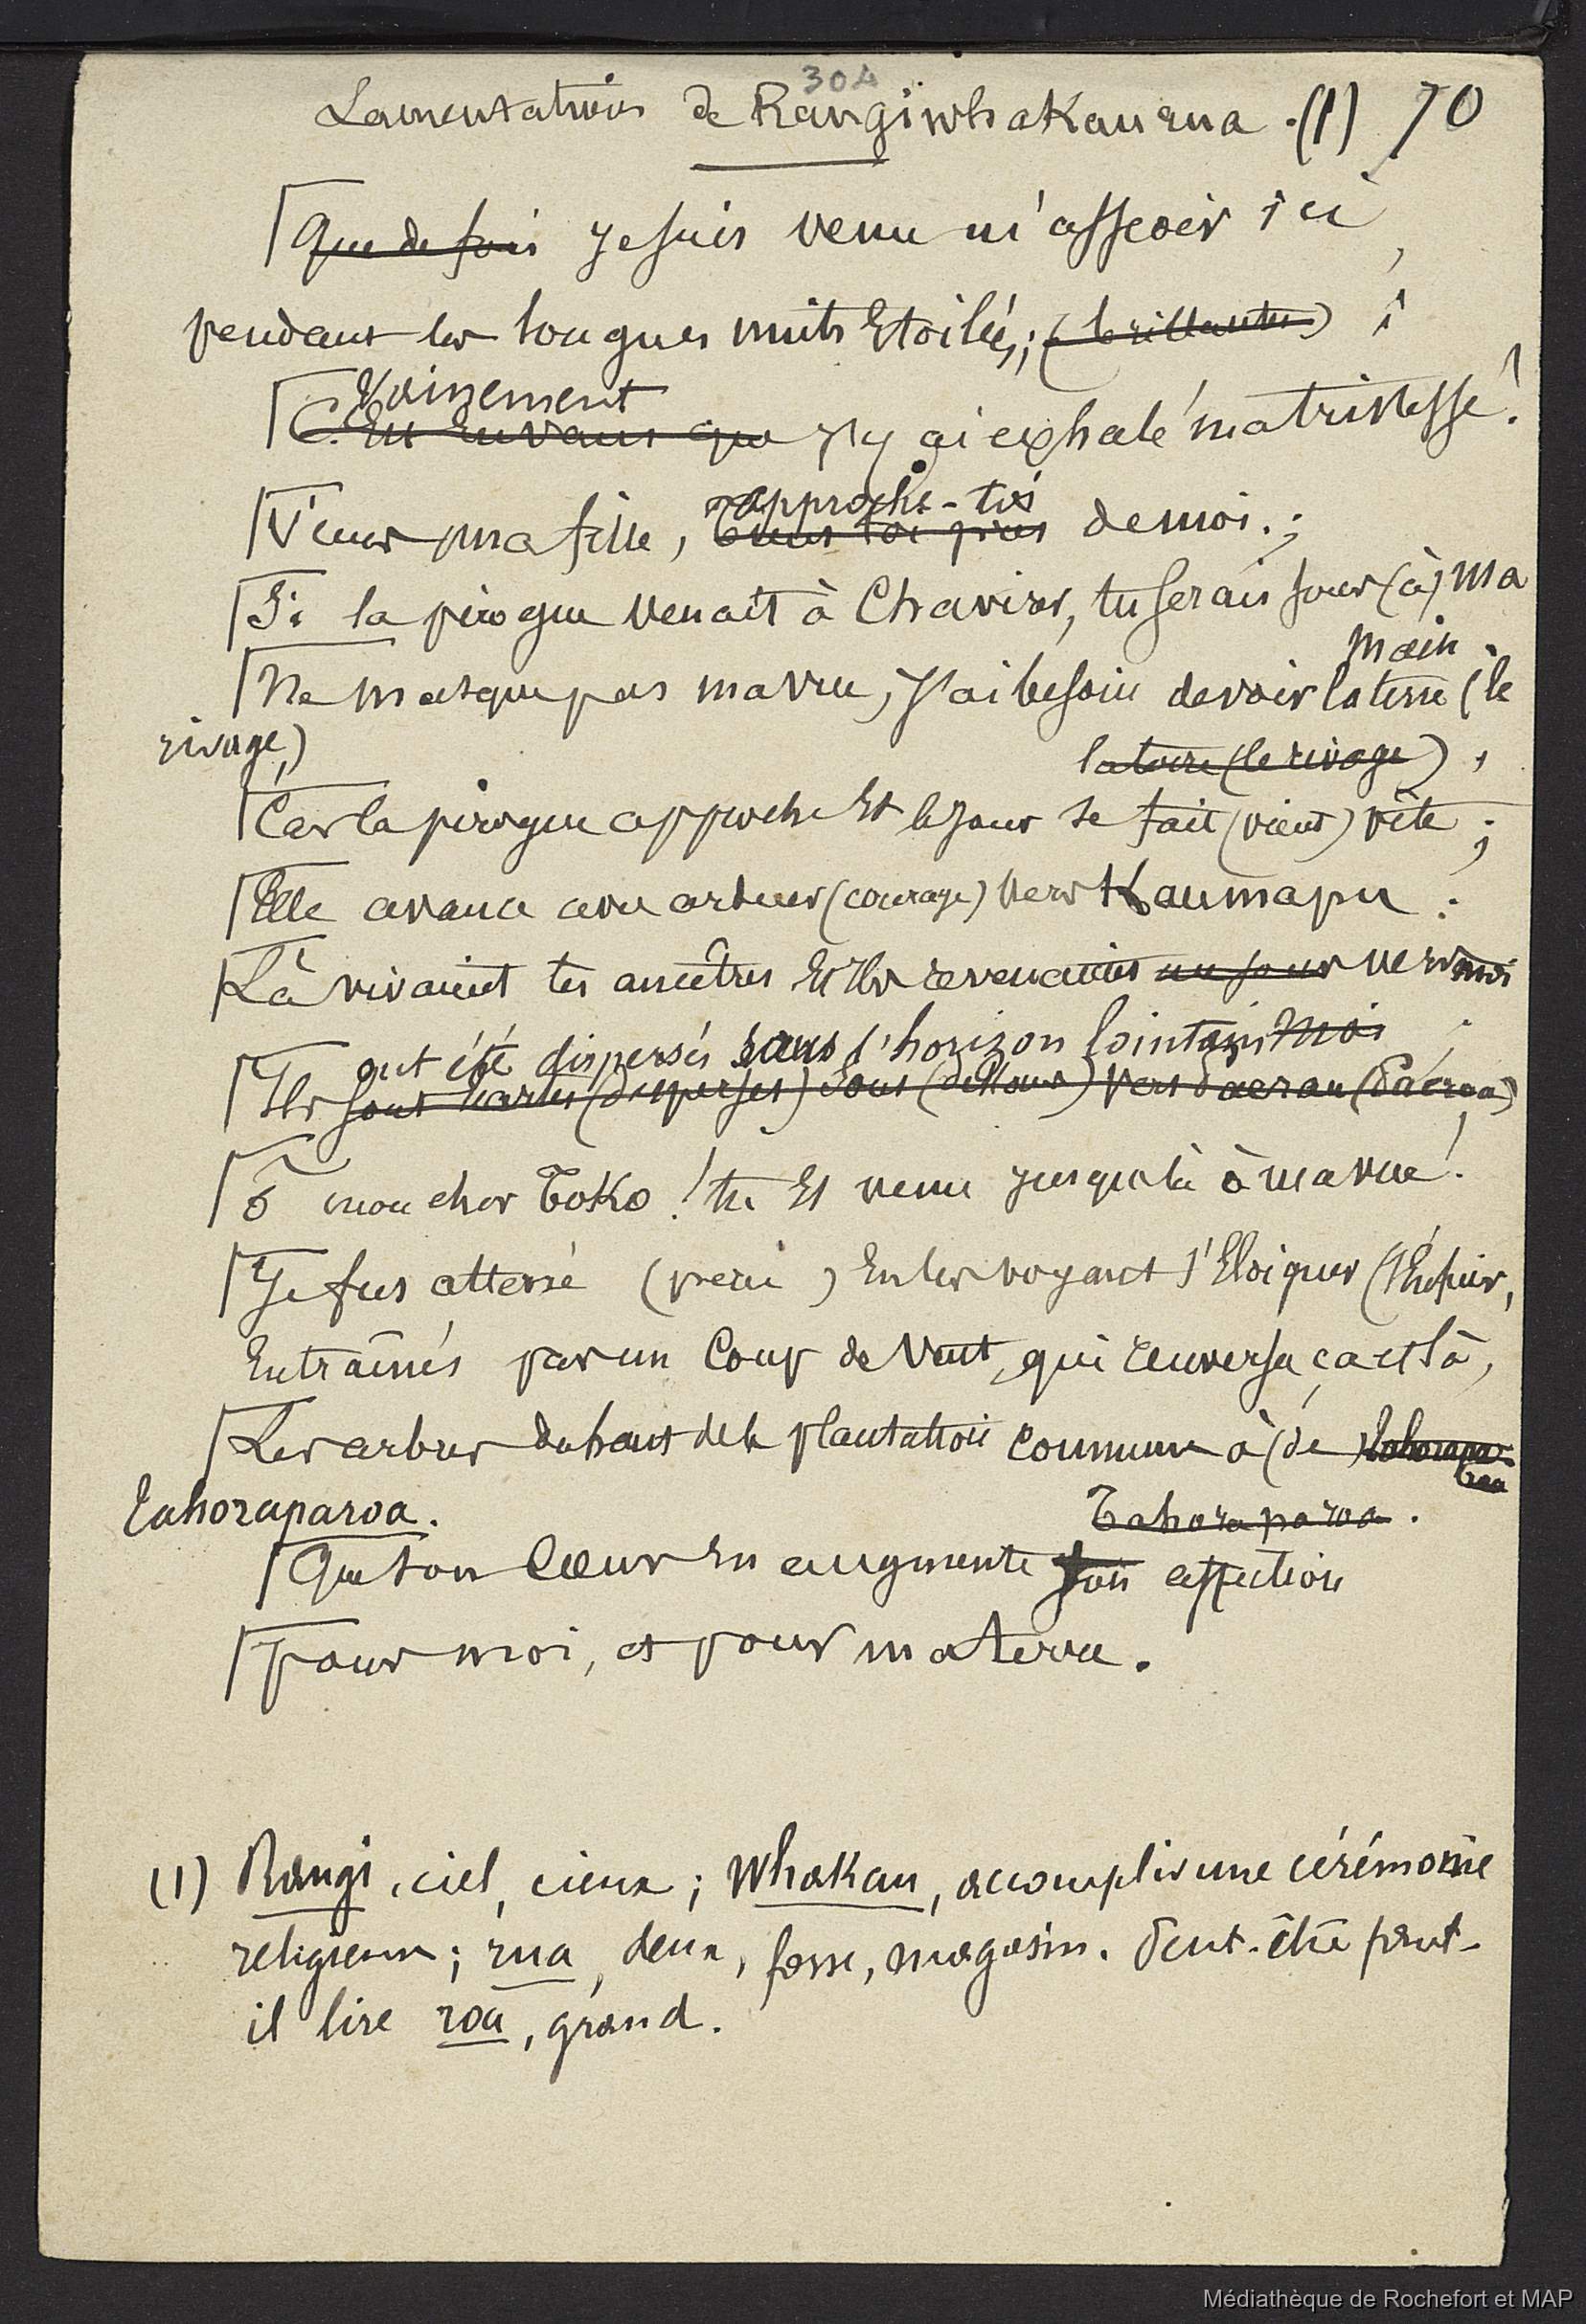 304
Lamentations de Rangiwhakaurua. (1) 70
Que de fois je suis venu m'asseoir ici,
pendant les longues nuits Etoilées; (brillantes)
Vainement
C'est en vain que j'y ai exhalé ma tristesse!
approche-toi
Viens ma fille, tiens toi près de moi.;
Si la pirogue venait à chavirer, tu serais sous (à) ma
main.
Ne masque pas ma vue, j'ai besoin de voir la terre (le
rivage,)
la terre (le rivage),
Car la pirogue approche et le jour se fait (vient) vite;
Elle avance avec ardeur (courage) vers Kaumapu:
Là vivaient tes ancêtres Et Ils revenaient un jour vers moi
ont été dispersés dans l'horizon lointain moi
Ils sont (dispersés) sous (dessous) vers
ô mon cher Toko! tu Es venu jusque là à ma vue!
Je fus atterré (péri) En les voyant s'Eloigner (s'Enfuir,
Entraînés par un Coup de Vent, qui renversa ça et là,
Les arbres du haut de la plantation commune à (de) Tahorapa-
roa
Tahoraparoa.
Tahoraparoa.
Que ton Cœur En augmente son affection
Pour moi, et pour ma terre.
(1) Rangi, ciel, cieux; Whakau, accomplir une cérémonie
religieuse; rua, deux, fosse, magasin. Peut-être faut-
il lire roa, grand.
Médiathèque de Rochefort et MAP